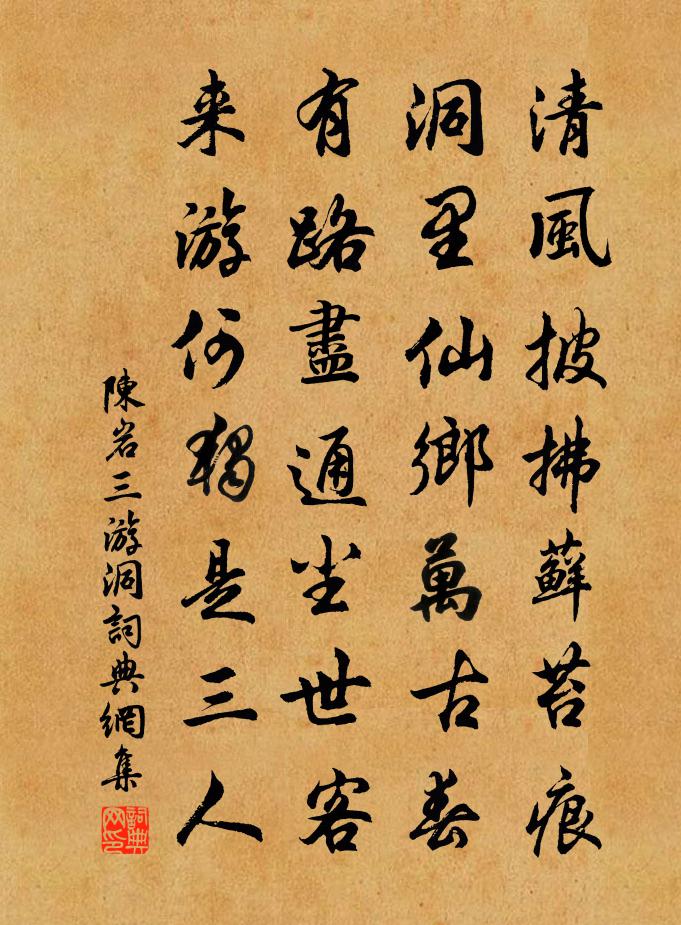 清風披拂蘚苔痕
洞里仙鄉萬古春
有路盡通尘世客
来游何獨是三人
陳岩三游洞詞典網集
詞典网印